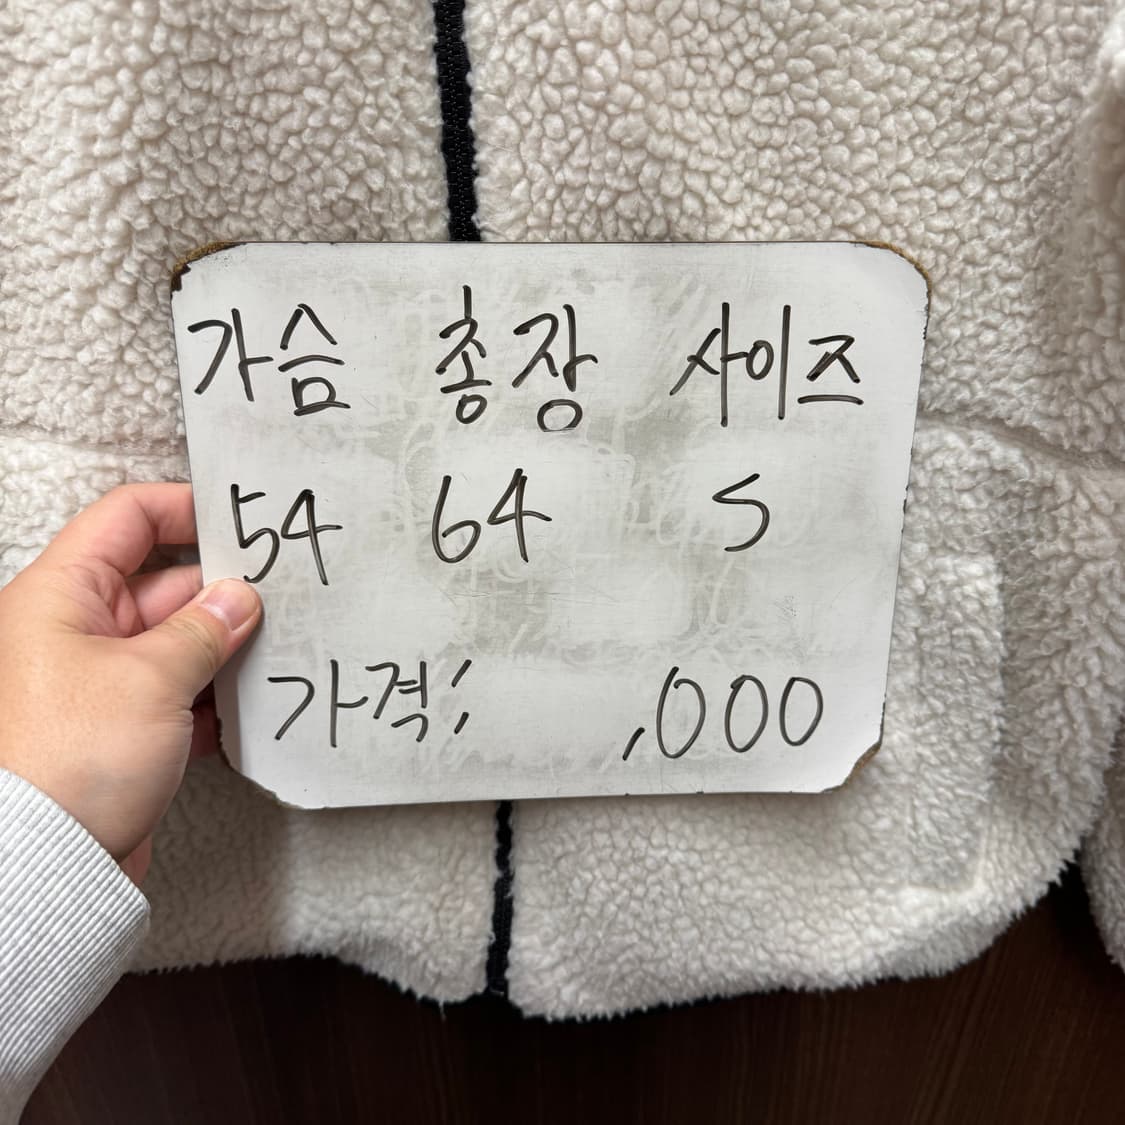 가슴 총장 사이즈
54 64 S
가격: ,000